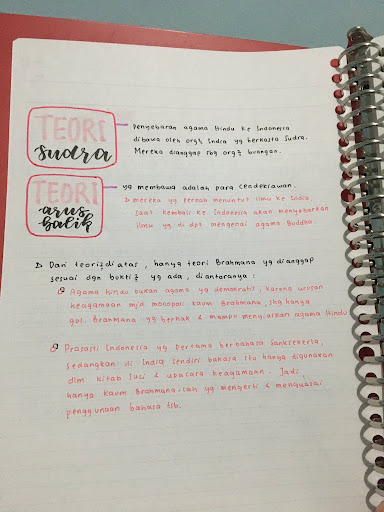 TEORI
sudra
Penyebaran agama Hindu ke Indonesia
dibawa oleh org² India yg berkasta Sudra.
Mereka dianggap sbg org² buangan.
TEORI
arus
balik
yg membawa adalah para cendekiawan.
mereka yg pernah menuntut ilmu ke India,
saat kembali ke Indonesia akan menyebarkan
ilmu yg di dpt mengenai agama Buddha.
Dari teori² di atas, hanya teori Brahmana yg dianggap
sesuai dgn bukti² yg ada, diantaranya :
Agama hindu bukan agama yg demokratis, karena urusan
keagamaan mjd monopoli kaum Brahmana, shg hanya
gol. Brahmana yg berhak & mampu menyiarkan agama Hindu
Prasasti Indonesia yg pertama berbahasa Sanksekerta,
sedangkan di India sendiri bahasa itu hanya digunakan
dlm kitab suci & upacara keagamaan. Jadi
hanya kaum Brahmana-lah yg mengerti & menguasai
penggunaan bahasa tsb.